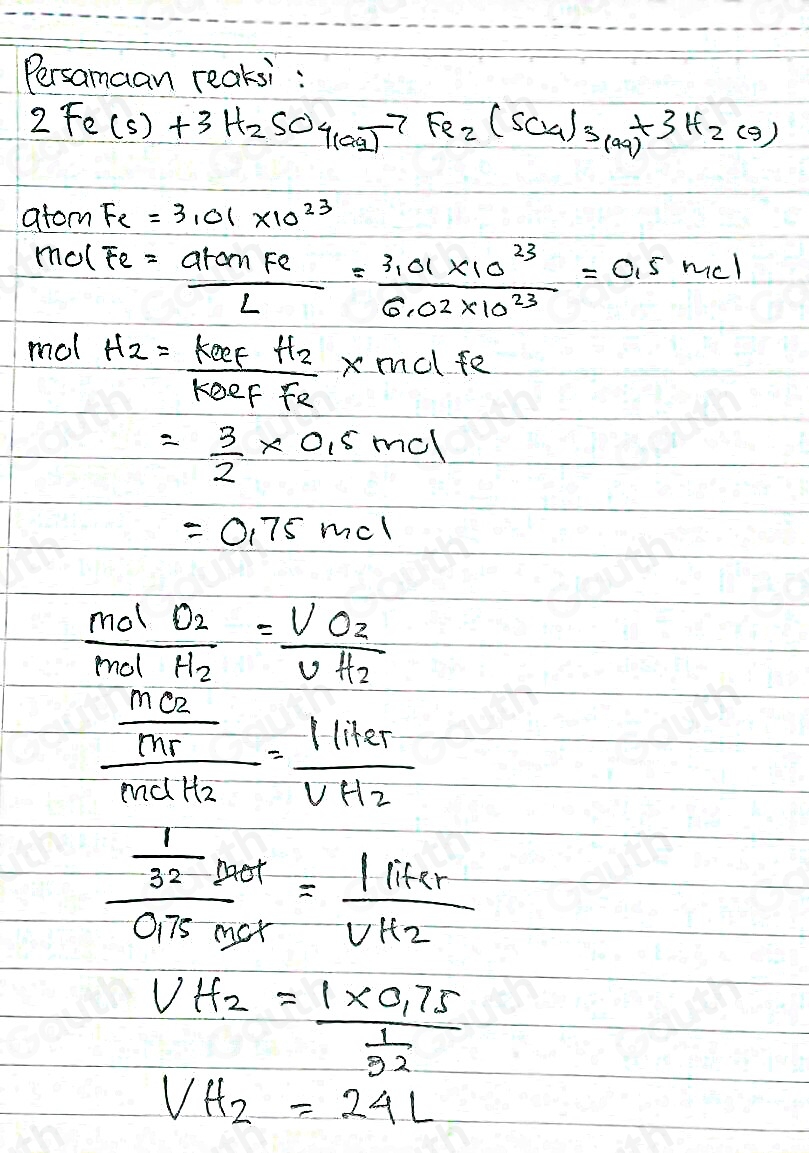 Persamaan reaksi :
2 Fe (s) + 3 H2SO4(aq) → Fe2(SO4)3(aq) + 3H2 (g)
atom Fe = 3,01 × 10^23
mol Fe = atom Fe / L = 3,01 × 10^23 / 6,02 × 10^23 = 0,5 mol
mol H2 = koef H2 / koef Fe × mol Fe
= 3/2 × 0,5 mol
= 0,75 mol
mol O2 / mol H2 = V O2 / V H2
(m O2 / mr) / mol H2 = 1 liter / V H2
(1/32 mol) / 0,75 mol = 1 liter / V H2
V H2 = 1 × 0,75 / (1/32)
V H2 = 24 L
Gauth